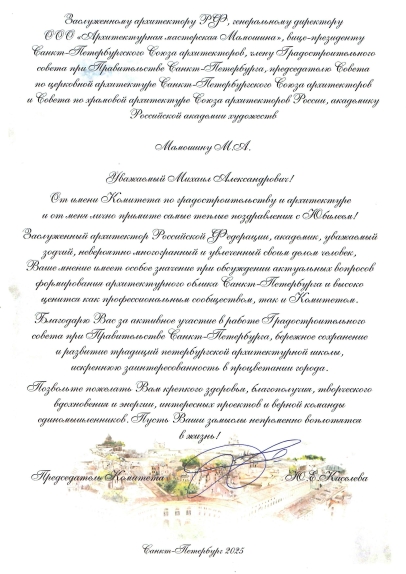 Заслуженному архитектору РФ, генеральному директору
ООО «Архитектурная мастерская Мамошина», вице-президенту
Санкт-Петербургского Союза архитекторов, члену Градостроительного
совета при Правительстве Санкт-Петербурга, председателю Совета
по церковной архитектуре Санкт-Петербургского Союза архитекторов
и Совета по храмовой архитектуре Союза архитекторов России, академику
Российской академии художеств
Мамошину М.А.
Уважаемый Михаил Александрович!
От имени Комитета по градостроительству и архитектуре
и от меня лично примите самые теплые поздравления с Юбилеем!
Заслуженный архитектор Российской Федерации, академик, уважаемый
зодчий, невероятно многогранный и увлеченный своим делом человек,
Ваше мнение имеет особое значение при обсуждении актуальных вопросов
формирования архитектурного облика Санкт-Петербурга и высоко
ценится как профессиональным сообществом, так и Комитетом.
Благодарю Вас за активное участие в работе Градостроительного
совета при Правительстве Санкт-Петербурга, бережное сохранение
и развитие традиций петербургской архитектурной школы,
искреннюю заинтересованность в процветании города.
Позвольте пожелать Вам крепкого здоровья, благополучия, творческого
вдохновения и энергии, интересных проектов и верной команды
единомышленников. Пусть Ваши замыслы непременно воплотятся
в жизнь!
Председатель Комитета Ю.Е.Киселева
Санкт-Петербург 2025